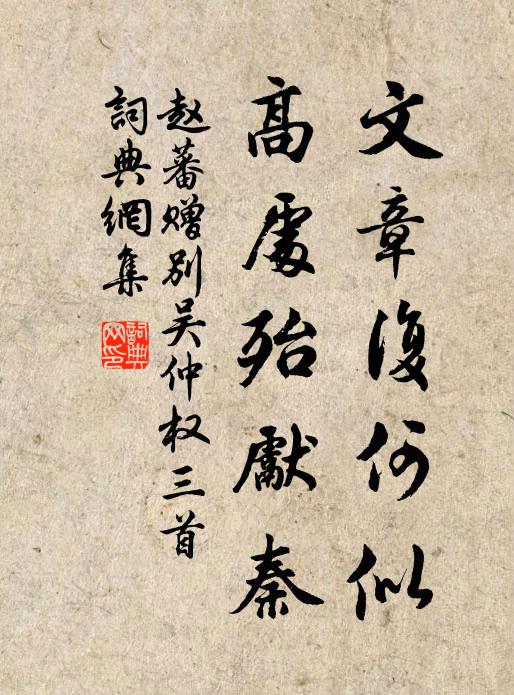 文章復何似
高處殆獻秦
赵蕃贈别吴仲权三首
詞典網集
詞典网印